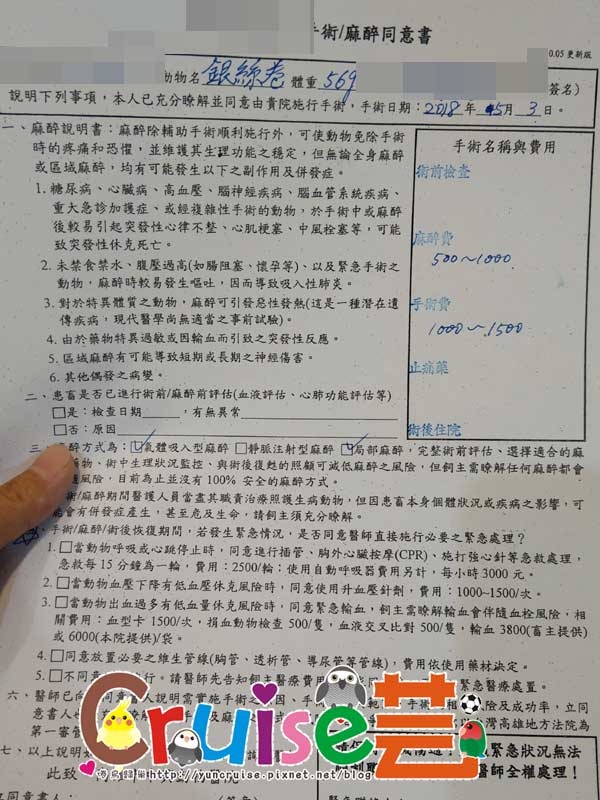 手術/麻醉同意書
0.05 更新版
動物名 銀絲卷 體重 569
簽名)
說明下列事項,本人已充分瞭解並同意由貴院施行手術,手術日期:2018年 5月 3日。
一、麻醉說明書:麻醉除輔助手術順利施行外,可使動物免除手術
時的疼痛和恐懼,並維護其生理功能之穩定,但無論全身麻醉
或區域麻醉,均有可能發生以下之副作用及併發症。
1. 糖尿病、心臟病、高血壓、腦神經疾病、腦血管系統疾病、
重大急診加護症、或經複雜性手術的動物,於手術中或麻醉
後較易引起突發性心律不整、心肌梗塞、中風栓塞等,可能
致突發性休克死亡。
2. 未禁食禁水、腹壓過高(如腸阻塞、懷孕等)、以及緊急手術之
動物,麻醉時較易發生嘔吐,因而導致吸入性肺炎。
3. 對於特異體質之動物,麻醉可引發惡性發熱(這是一種潛在遺
傳疾病,現代醫學尚無適當之事前試驗)。
4. 由於藥物特異過敏或因輸血而引致之突發性反應。
5. 區域麻醉有可能導致短期或長期之神經傷害。
6. 其他偶發之病變。
手術名稱與費用
術前檢查
麻醉費
500~1000
手術費
1000~1500
止痛藥
術後住院
二、患畜是否已進行術前/麻醉前評估(血液評估、心肺功能評估等)
□是:檢查日期______,有無異常
□否:原因
三、麻醉方式為:☑氣體吸入型麻醉 □靜脈注射型麻醉 ☑局部麻醉,完整術前評估、選擇適合的麻
藥物、術中生理狀況監控、與術後復甦的照顧可減低麻醉之風險,但飼主需瞭解任何麻醉都會
風險,目前為止並沒有 100% 安全的麻醉方式。
術/麻醉期間醫護人員當盡其職責治療照護生病動物,但因患畜本身個體狀況或疾病之影響,可
會有併發症產生,甚至危及生命,請飼主須充分瞭解。
手術/麻醉/術後恢復期間,若發生緊急情況,是否同意醫師直接施行必要之緊急處理?
1. □當動物呼吸或心跳停止時,同意進行插管、胸外心臟按摩(CPR)、施打強心針等急救處理,
急救每 15 分鐘為一輪,費用:2500/輪;使用自動呼吸器費用另計,每小時 3000 元。
2. □當動物血壓下降有低血壓休克風險時,同意使用升血壓針劑,費用:1000~1500/次。
3. □當動物出血過多有低血量休克風險時,同意緊急輸血,飼主需瞭解輸血會伴隨血栓風險,相
關費用:血型卡 1500/次,捐血動物檢查 500/隻,血液交叉比對 500/隻,輸血 3800(畜主提供)
或 6000(本院提供)/袋。
4. □同意放置必要之維生管線(胸管、透析管、導尿管等管線),費用依使用藥材決定。
5. □不同意 行。請醫師先告知飼主醫療費用 緊急醫療處置。
六、醫師已向
第一審管
七、以上說明
此致
緊急狀況無法
醫師全權處理!
Cruise芸
http://yuncruise.pixnet.net/blog